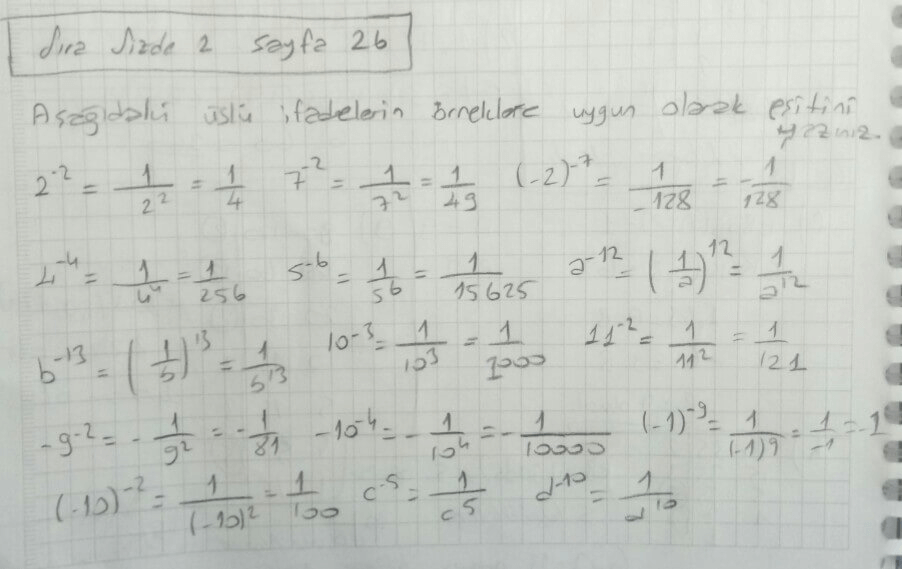 Sıra Sizde 2 sayfa 26
Aşağıdaki üslü ifadelerin örneklere uygun olarak eşitini yazınız.
2⁻² = 1/2² = 1/4 7⁻² = 1/7² = 1/49 (-2)⁻⁷ = 1/-128 = -1/128
4⁻⁴ = 1/4⁴ = 1/256 5⁻⁶ = 1/5⁶ = 1/15625 a⁻¹² = (1/a)¹² = 1/a¹²
b⁻¹³ = (1/b)¹³ = 1/b¹³ 10⁻³ = 1/10³ = 1/1000 11⁻² = 1/11² = 1/121
-9⁻² = -1/9² = -1/81 -10⁻⁴ = -1/10⁴ = -1/10000 (-1)⁻⁹ = 1/(-1)9 = 1/-1 = -1
(-10)⁻² = 1/(-10)² = 1/100 c⁻⁵ = 1/c⁵ d⁻¹⁰ = 1/d¹⁰